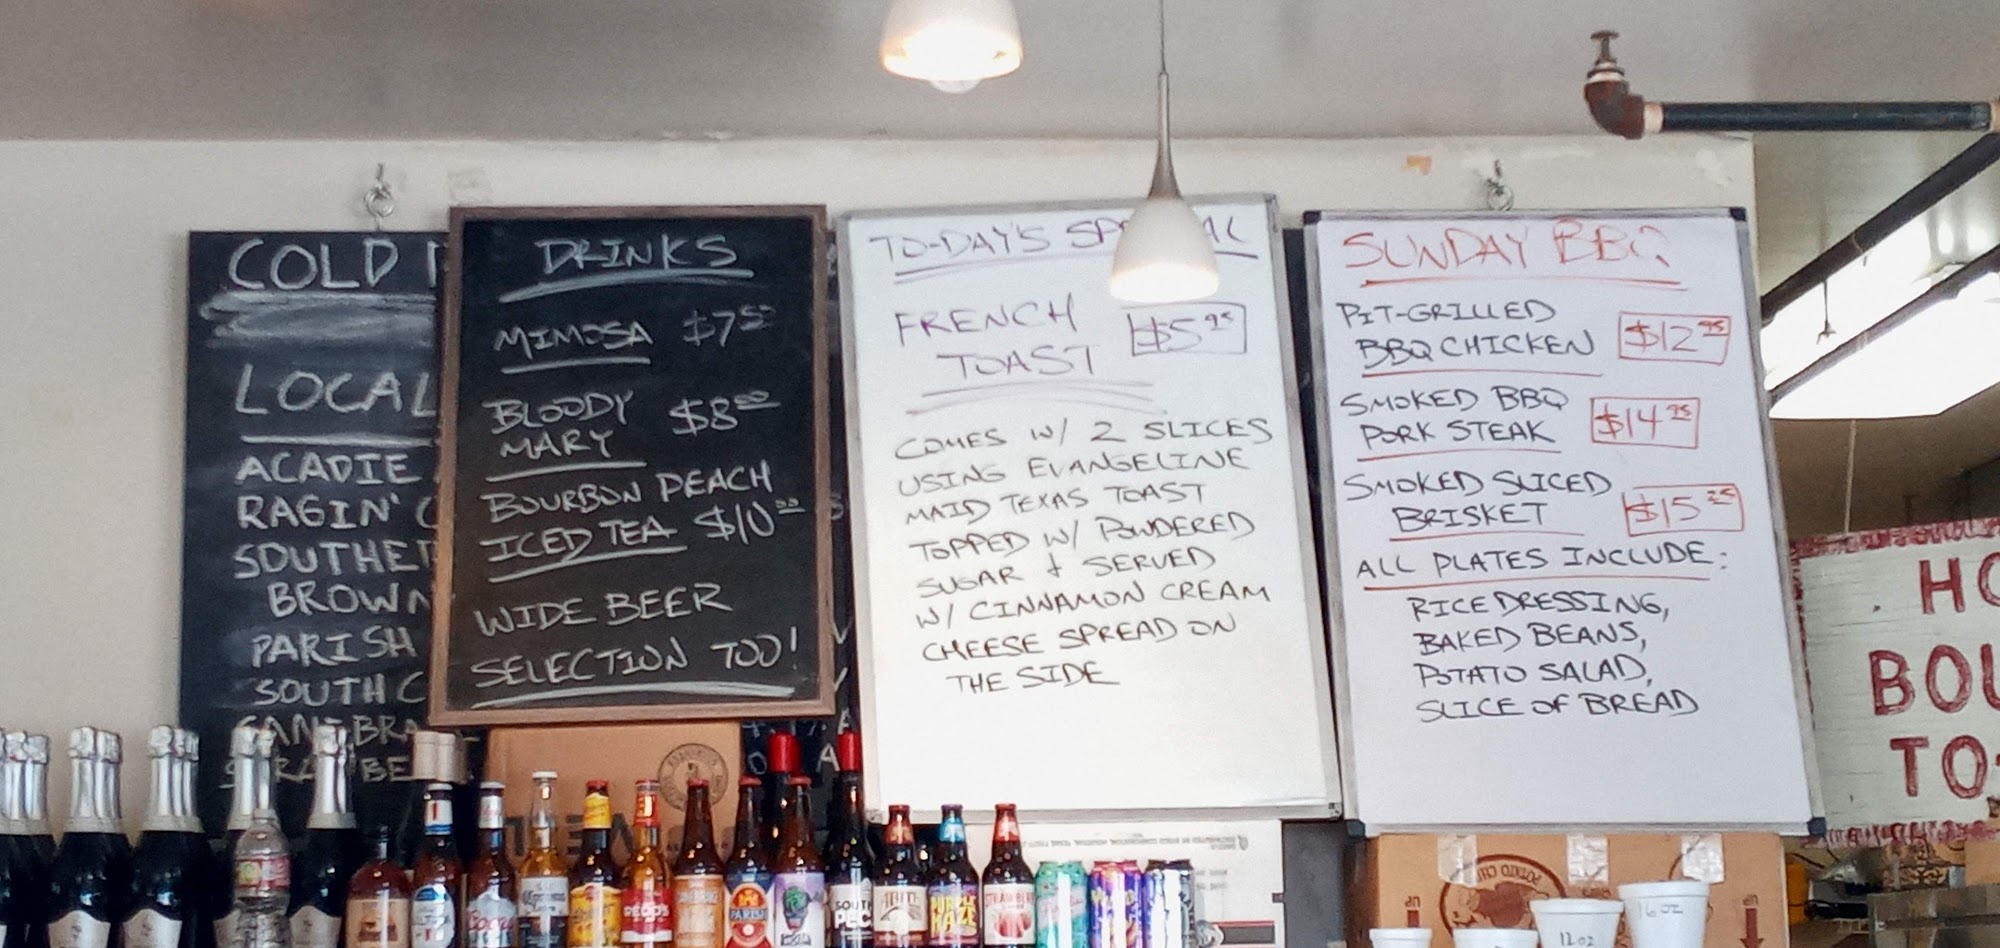 COLD
LOCAL
ACADIE
RAGIN' C
SOUTHE
BROWN
PARISH
SOUTH C
DRINKS
MIMOSA $7.50
BLOODY $8.00
MARY
BOURBON PEACH
ICED TEA $10.00
WIDE BEER
SELECTION TOO!
TO-DAY'S SP AL
FRENCH
TOAST $5.95
COMES W/ 2 SLICES
USING EVANGELINE
MAID TEXAS TOAST
TOPPED W/ POWDERED
SUGAR & SERVED
W/ CINNAMON CREAM
CHEESE SPREAD ON
THE SIDE
SUNDAY BBQ
PIT-GRILLED
BBQ CHICKEN $12.95
SMOKED BBQ
PORK STEAK $14.25
SMOKED SLICED
BRISKET $15.25
ALL PLATES INCLUDE:
RICE DRESSING,
BAKED BEANS,
POTATO SALAD,
SLICE OF BREAD
HO
BOU
TO-
REDD'S
PARISH
SOUTH
PEC
PURPLE
HAZE
STRAWBE
POTATO CH
UP
UP
16 OZ
12 OZ